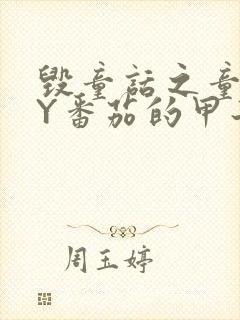 毁童话之童
Y番茄的甲
周玉婷